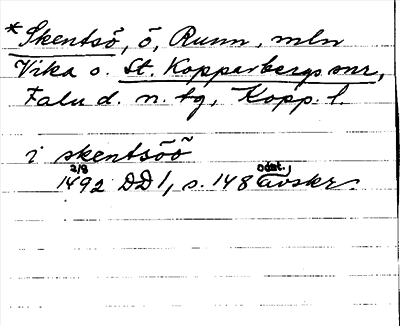 *Skentsö, ö, Runn, mln
Vika o. St. Kopparbergs snr,
Falu d. n. tg, Kopp. l.
i skentsöö
2/8 odat.,
1492 DD 1, s. 148 avskr.